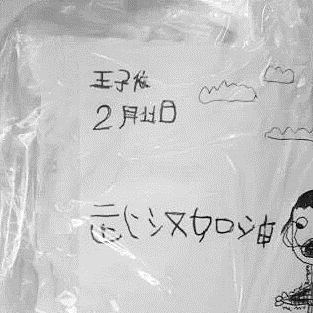 王子依
2月11日
武汉加油